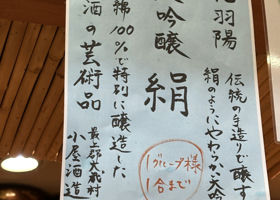 花羽陽
大吟醸 絹
伝統の手造りで醸す
絹のようにやわらか大吟
綿100%で特別に醸造した
酒の芸術品
最上郡大蔵村
小屋酒造
1グループ様
1合まで